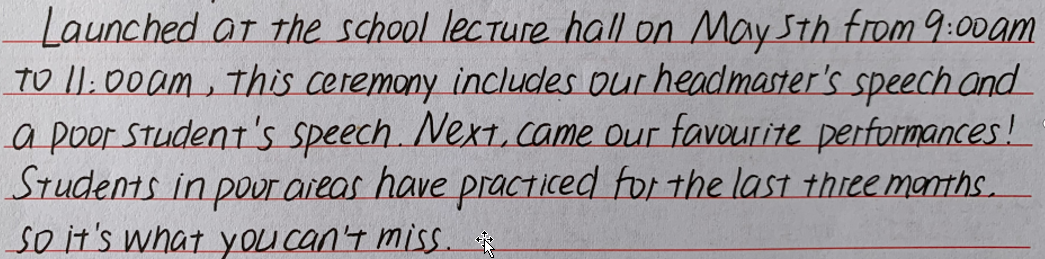 Launched at the school lecture hall on May 5th from 9:00am
to 11:00am, this ceremony includes our headmaster's speech and
a poor student's speech. Next, came our favourite performances!
Students in poor areas have practiced for the last three months.
so it's what you can't miss.